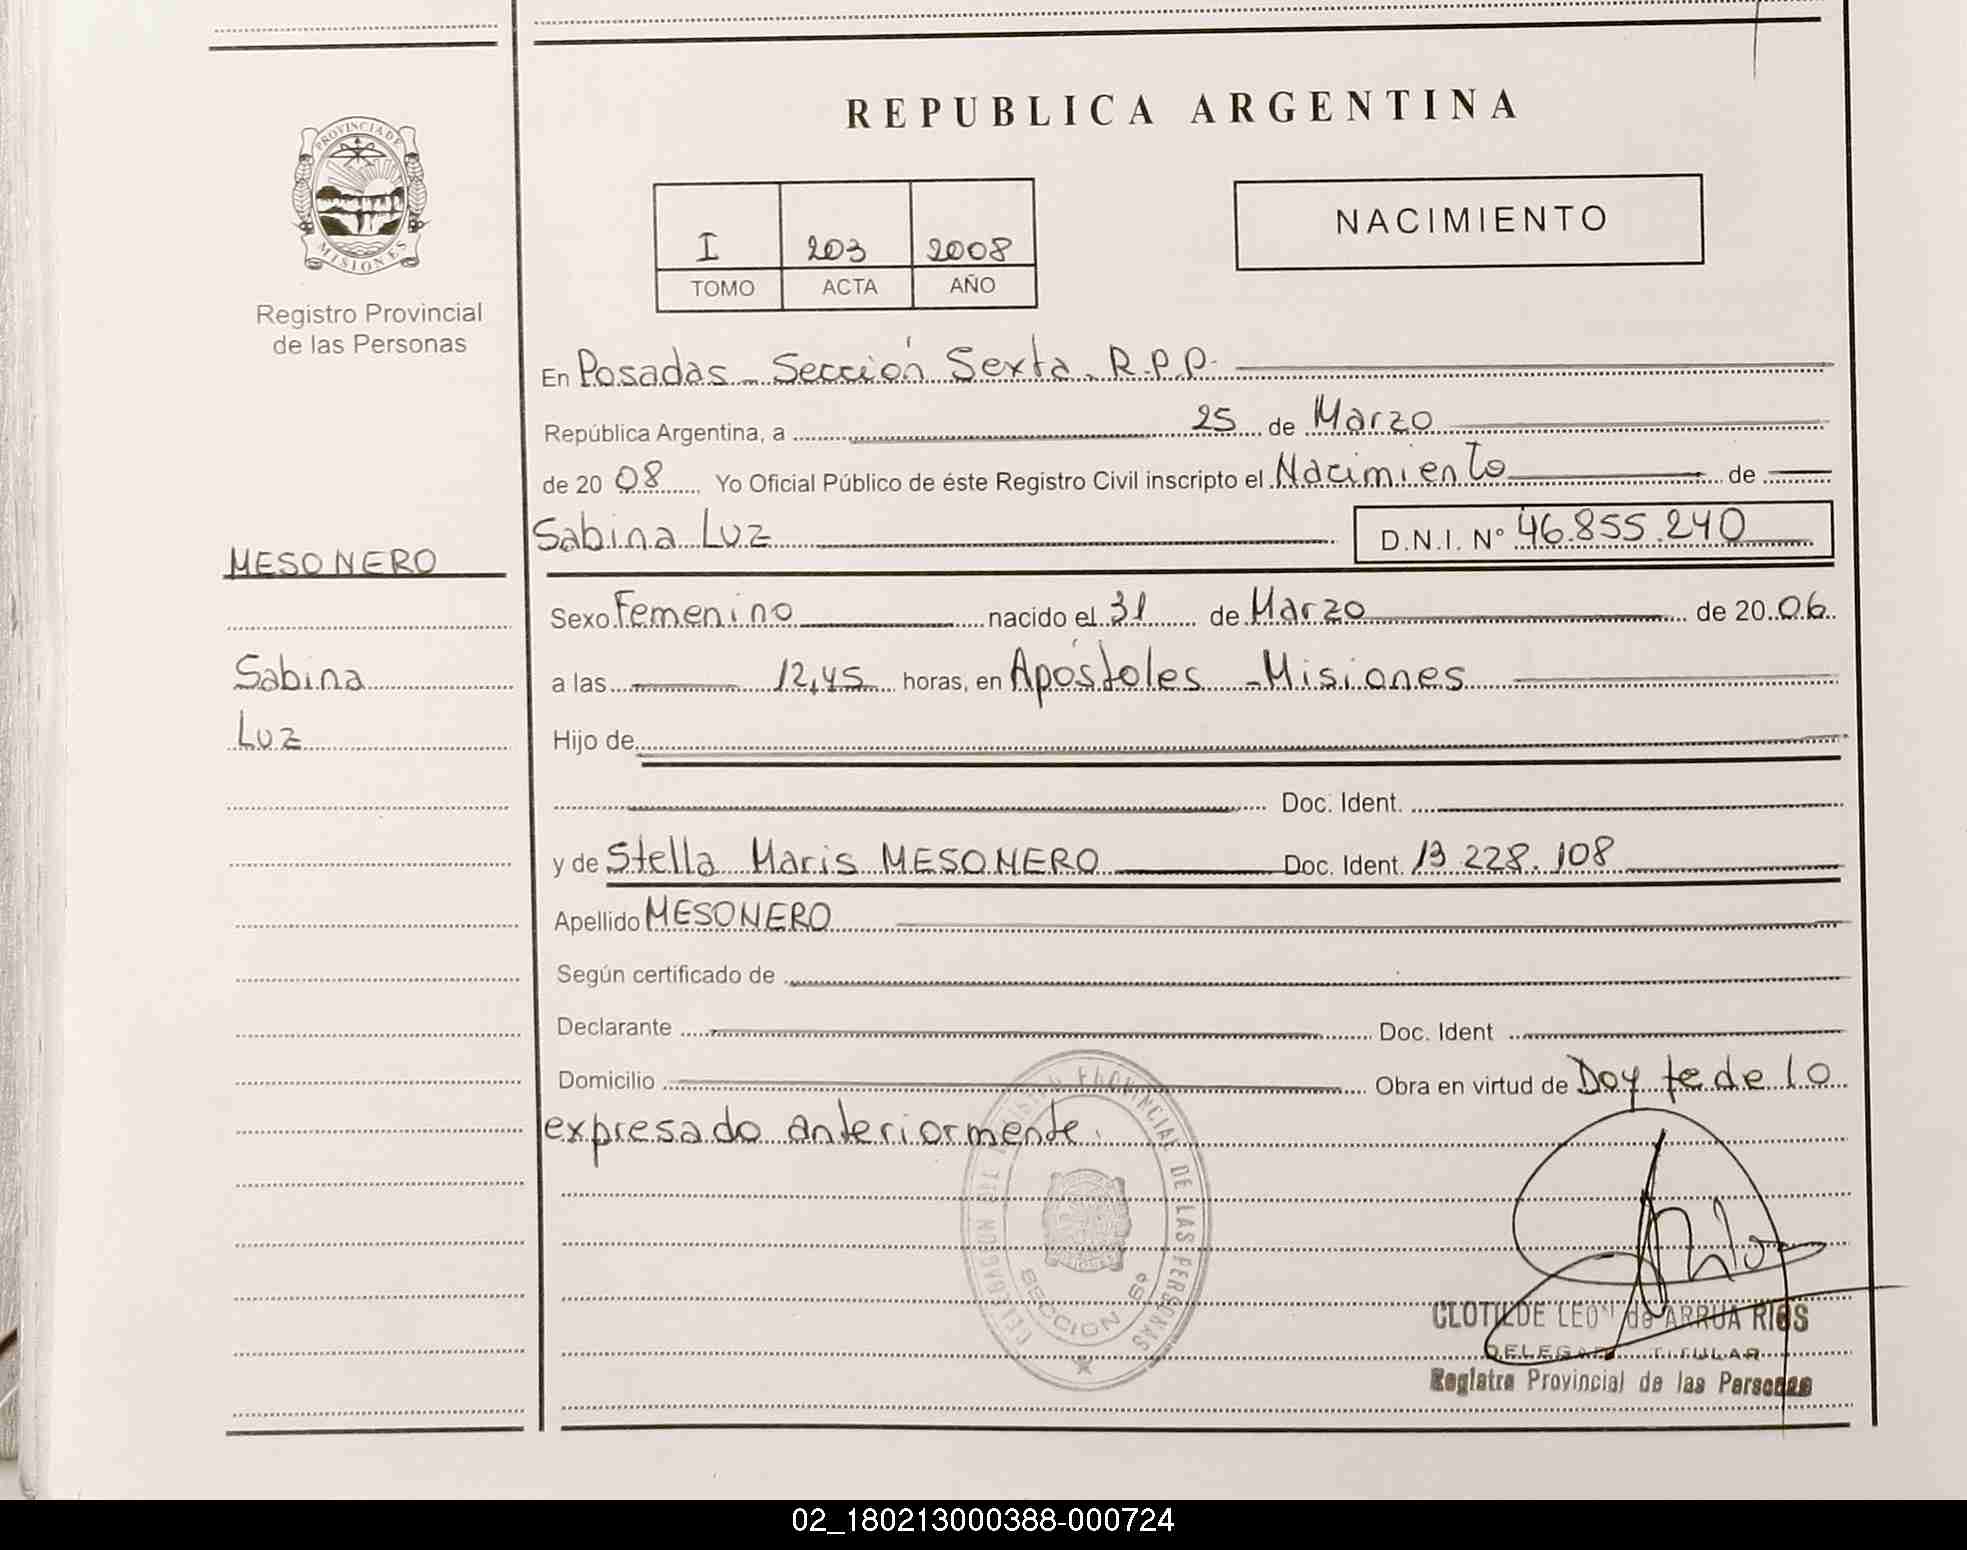 REPUBLICA ARGENTINA
PROVINCIA DE
MISIONES
Registro Provincial
de las Personas
NACIMIENTO
I 203 2008
TOMO ACTA AÑO
En Posadas - Sección Sexta. R.P.P.
República Argentina, a 25 de Marzo
de 20 08 Yo Oficial Público de éste Registro Civil inscripto el Nacimiento de
Sabina Luz D.N.I. N° 46.855.240
MESONERO
Sexo Femenino nacido el 31 de Marzo de 20 06
Sabina
Luz
a las 12,45 horas, en Apóstoles - Misiones
Hijo de
Doc. Ident.
y de Stella Maris MESONERO Doc. Ident. 13.228.108
Apellido MESONERO
Según certificado de
Declarante Doc. Ident
Domicilio Obra en virtud de Doy fe de lo
expresado anteriormente.
PROVINCIAL DE LAS PERSONAS
SECCION 6º
CLOTILDE LEON de ARRUA RIOS
DELEGADA TITULAR
Registro Provincial de las Personas
02_180213000388-000724